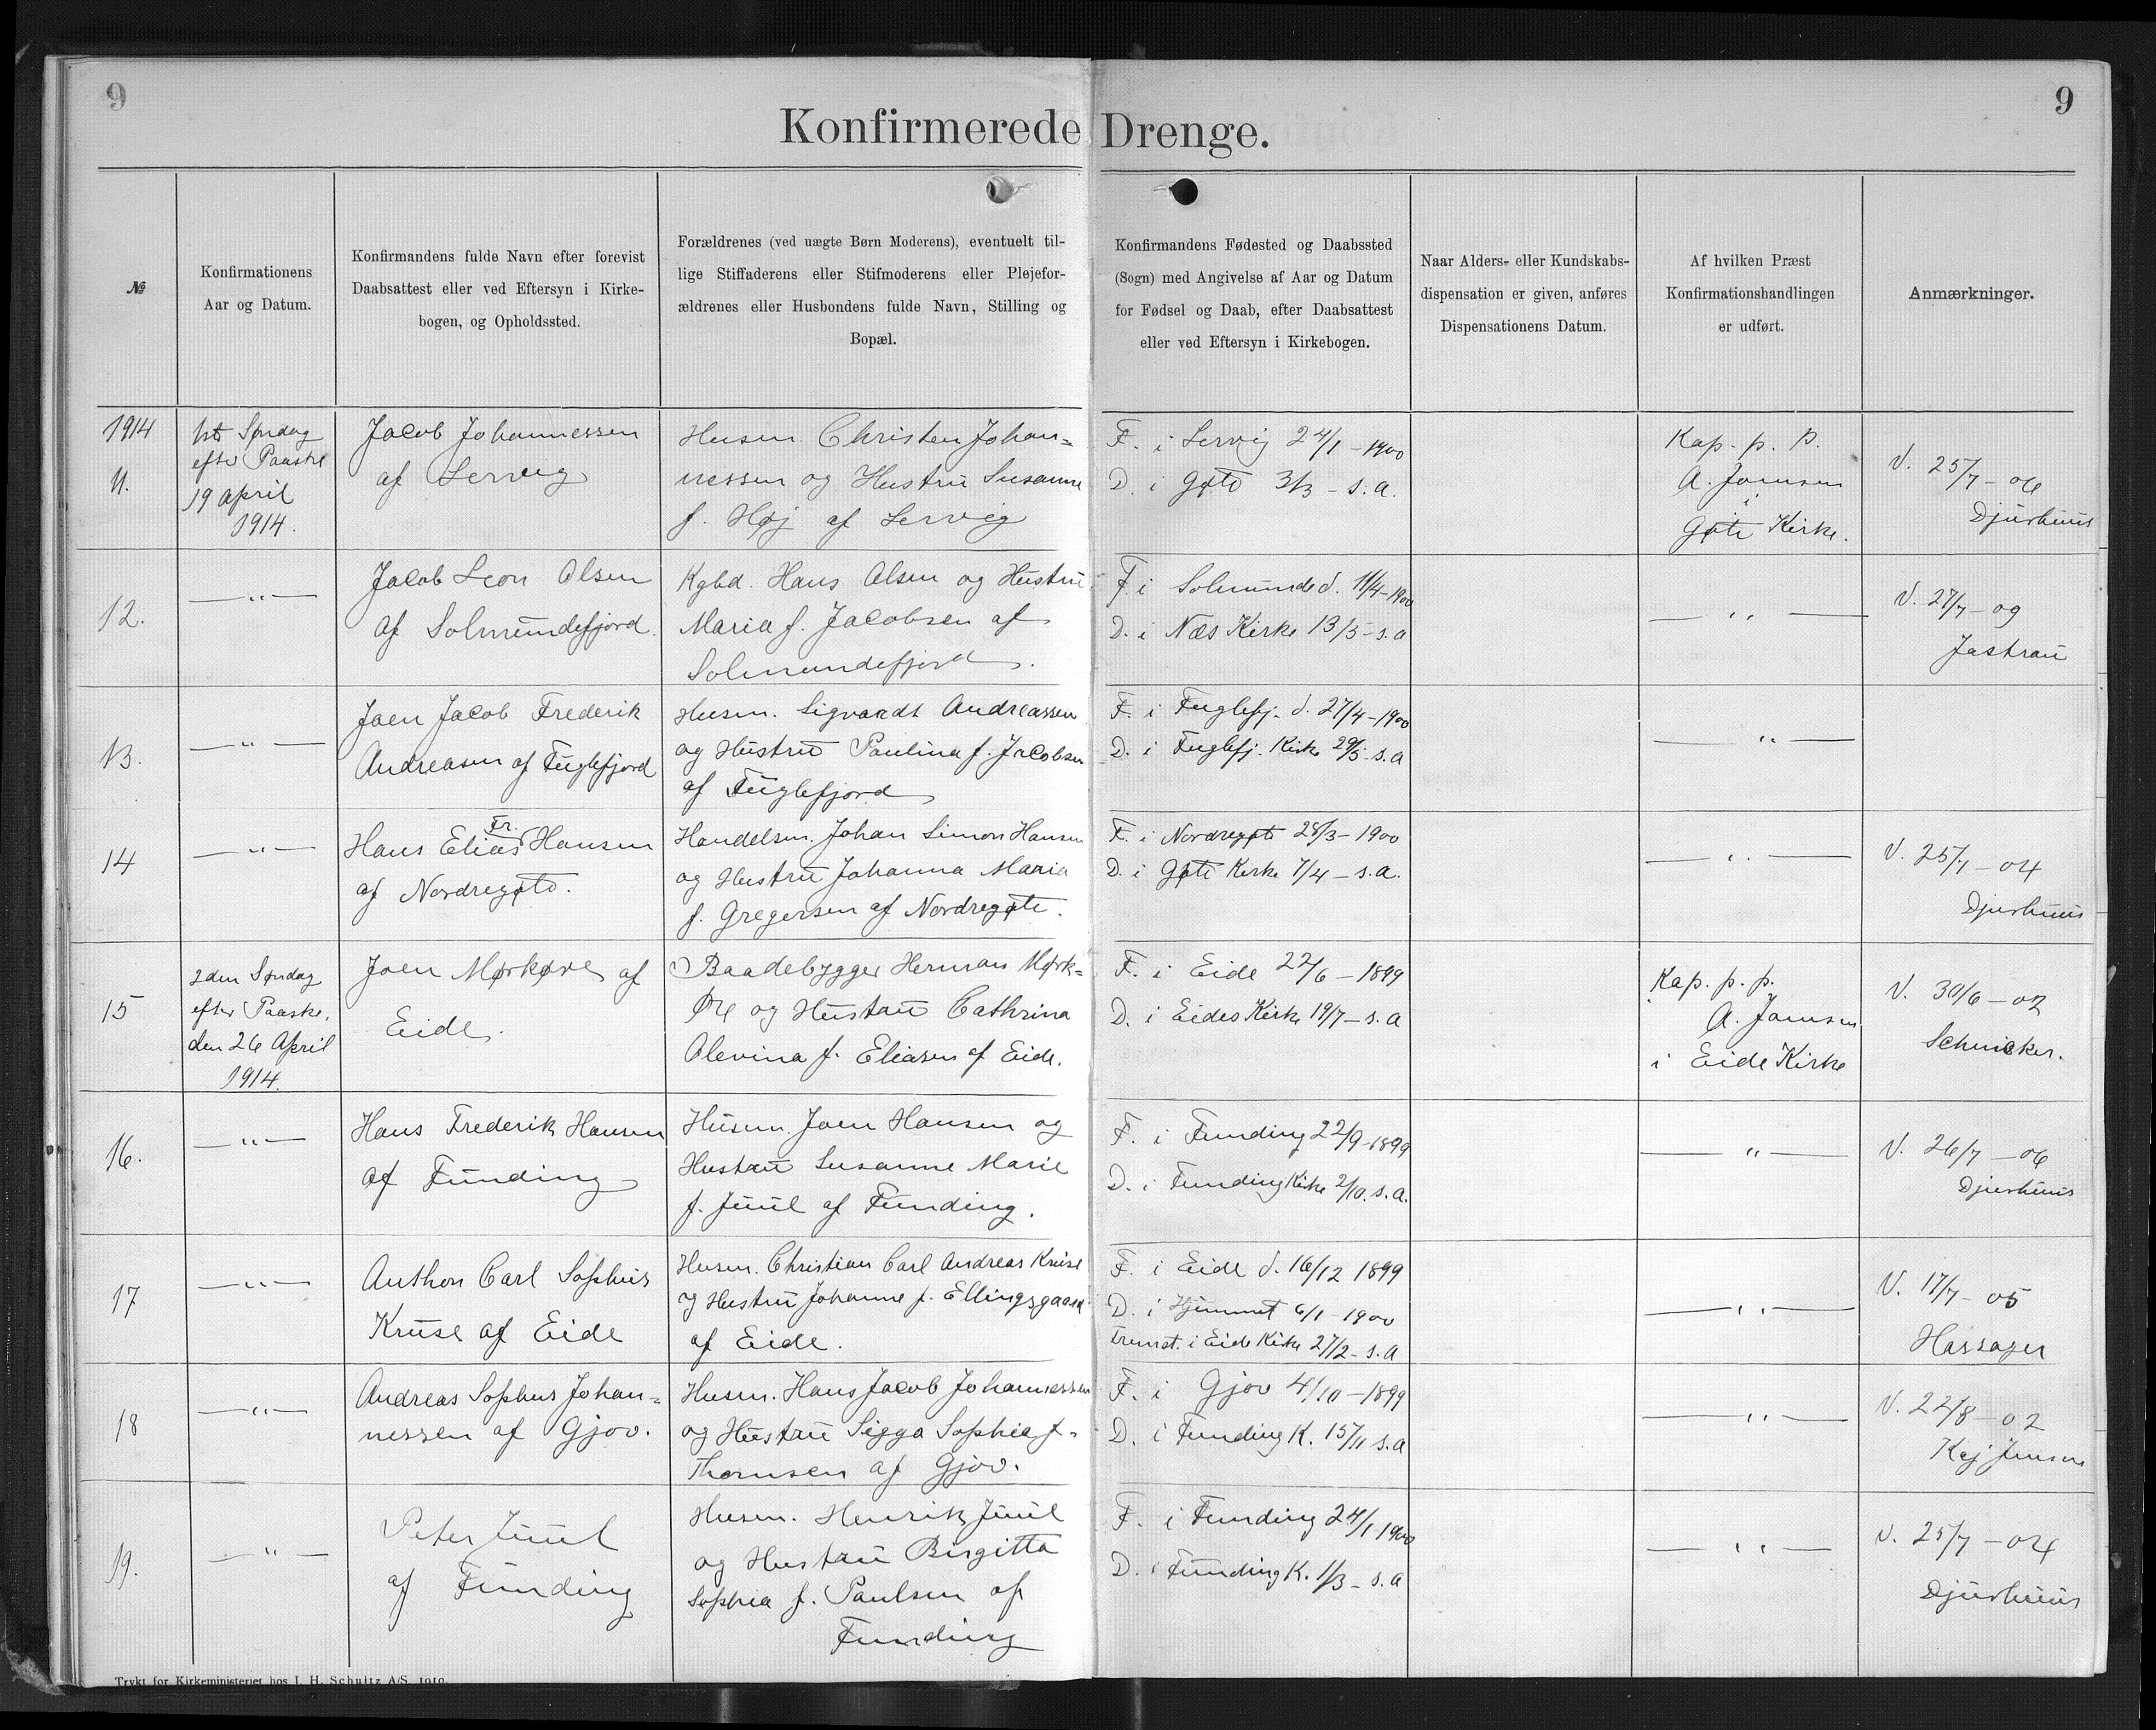 9
9
Konfirmerede Drenge.
№
Konfirmationens
Aar og Datum.
Konfirmandens fulde Navn efter forevist
Daabsattest eller ved Eftersyn i Kirke-
bogen, og Opholdssted.
Forældrenes (ved uægte Børn Moderens), eventuelt til-
lige Stiffaderens eller Stifmoderens eller Plejefor-
ældrenes eller Husbondens fulde Navn, Stilling og
Bopæl.
Konfirmandens Fødested og Daabssted
(Sogn) med Angivelse af Aar og Datum
for Fødsel og Daab, efter Daabsattest
eller ved Eftersyn i Kirkebogen.
Naar Alders- eller Kundskabs-
dispensation er given, anføres
Dispensationens Datum.
Af hvilken Præst
Konfirmationshandlingen
er udført.
Anmærkninger.
1914
11.
1ste Søndag
efter Paaske
19 April
1914.
Jacob Johannessen
af Lervig
Husm. Christen Johan=
nessen og Hustru Susanne
f. Høj af Lervig
F. i Lervig 24/1 - 1900
D. i Gøte 3/3 - s. a.
Kap. p. p.
A. Jomsen
i
Gøte Kirke.
V. 25/7 - 06
Djurhuus
12.
— " —
Jacob Leon Olsen
af Solmundefjord.
Kgbd. Hans Olsen og Hustru
Maria f. Jacobsen af
Solmundefjord.
F. i Solmunde d. 11/4 - 1900
D. i Næs Kirke 13/5 - s. a
— " —
V. 27/7 - 09
Jastrau
13.
— " —
Joen Jacob Frederik
Andreasen af Fuglefjord
Husm. Sigvardt Andreassen
og Hustru Paulina f. Jacobsen
af Fuglefjord
F. i Fuglefj. d. 27/4 - 1900
D. i Fuglefj. Kirke 29/5 - s. a
— " —
14
— " —
Fr.
Hans Elias Hansen
af Nordregøte.
Handelsm. Johan Simon Hansen
og Hustru Johanna Maria
f. Gregersen af Nordregøte.
F. i Nordregøte 28/3 - 1900
D. i Gøte Kirke 7/4 - s. a.
— " —
V. 25/7 - 04
Djurhuus
15
2den Søndag
efter Paaske,
den 26 April
1914.
Joen Mørkøre af
Eide.
Baadebygger Herman Mørk=
øre og Hustru Cathrina
Olevina f. Eliasen af Eide.
F. i Eide 22/6 - 1899
D. i Eides Kirke 19/7 - s. a
Kap. p. p.
A. Jomsen
i Eide Kirke
V. 30/6 - 02
Schnicker.
16.
— " —
Hans Frederik Hansen
af Funding
Husm. Joen Hansen og
Hustru Susanne Marie
f. Juul af Funding.
F. i Funding 22/9 - 1899
D. i Funding Kirke 2/10. s. a.
— " —
V. 26/7 - 06
Djurhuus
17
— " —
Anthon Carl Sophus
Kruse af Eide
Husm. Christian Carl Andreas Kruse
og Hustru Johanne f. Ellingsgaard
af Eide.
F. i Eide d. 16/12 1899
D. i Hjemmet 6/1 - 1900
fremst. i Eide Kirke 27/2 - s. a
— " —
V. 17/7 - 05
Hassager
18
— " —
Andreas Sophus Johan=
nessen af Gjov.
Husm. Hans Jacob Johannessen
og Hustru Sigga Sophia f.
Thomsen af Gjov.
F. i Gjov 4/10 - 1899
D. i Funding K. 15/11 s. a
— " —
V. 22/8 - 02
Kaj Jensen
19.
— " —
Peter Juul
af Funding
Husm. Henrik Juul
og Hustru Birgitta
Sophia f. Paulsen af
Funding
F. i Funding 24/1 1900
D. i Funding K. 1/3 - s. a
— " —
V. 25/7 - 04
Djurhuus
Trykt for Kirkeministeriet hos J. H. Schultz A/S. 1910.